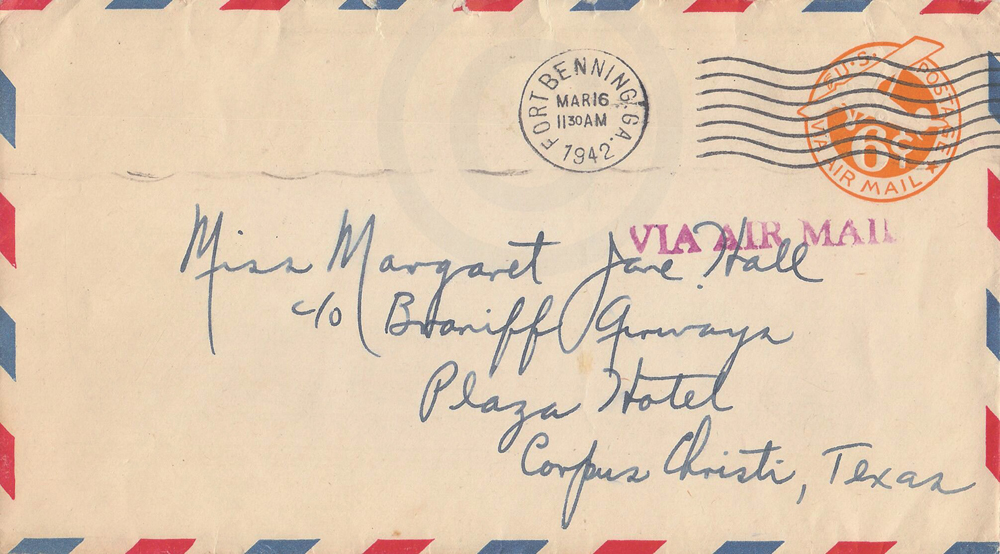 FORT BENNING, GA.
MAR 16
11 30 AM
1942
U.S. POSTAGE
6¢
VIA AIR MAIL
VIA AIR MAIL
Miss Margaret Jane Hall
c/o Braniff Airways
Plaza Hotel
Corpus Christi, Texas